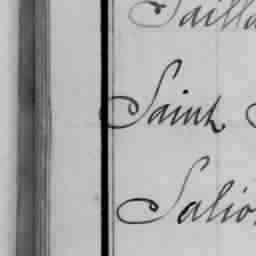 Sailla
Saint
Salio